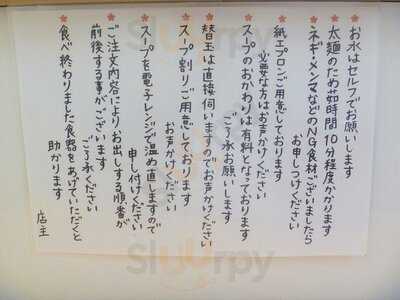 お水はセルフでお願いします
太麺のため茹時間10分程度かかります
ネギ・メンマなどのNG食材ございましたら
お申しつけください
紙エプロンご用意しております
必要な方はお声かけください
スープのおかわりは有料となっております
ご了承お願いします
替玉は直接伺いますのでお声かけください
スープ割りご用意しております
お声かけください
スープを電子レンジで温め直しますので
申し付けください
ご注文内容によりお出しする順番が
前後する事がございます
ご了承ください
食べ終わりました食器をあげていただくと
助かります
店主
Sluurpy
Sluurpy